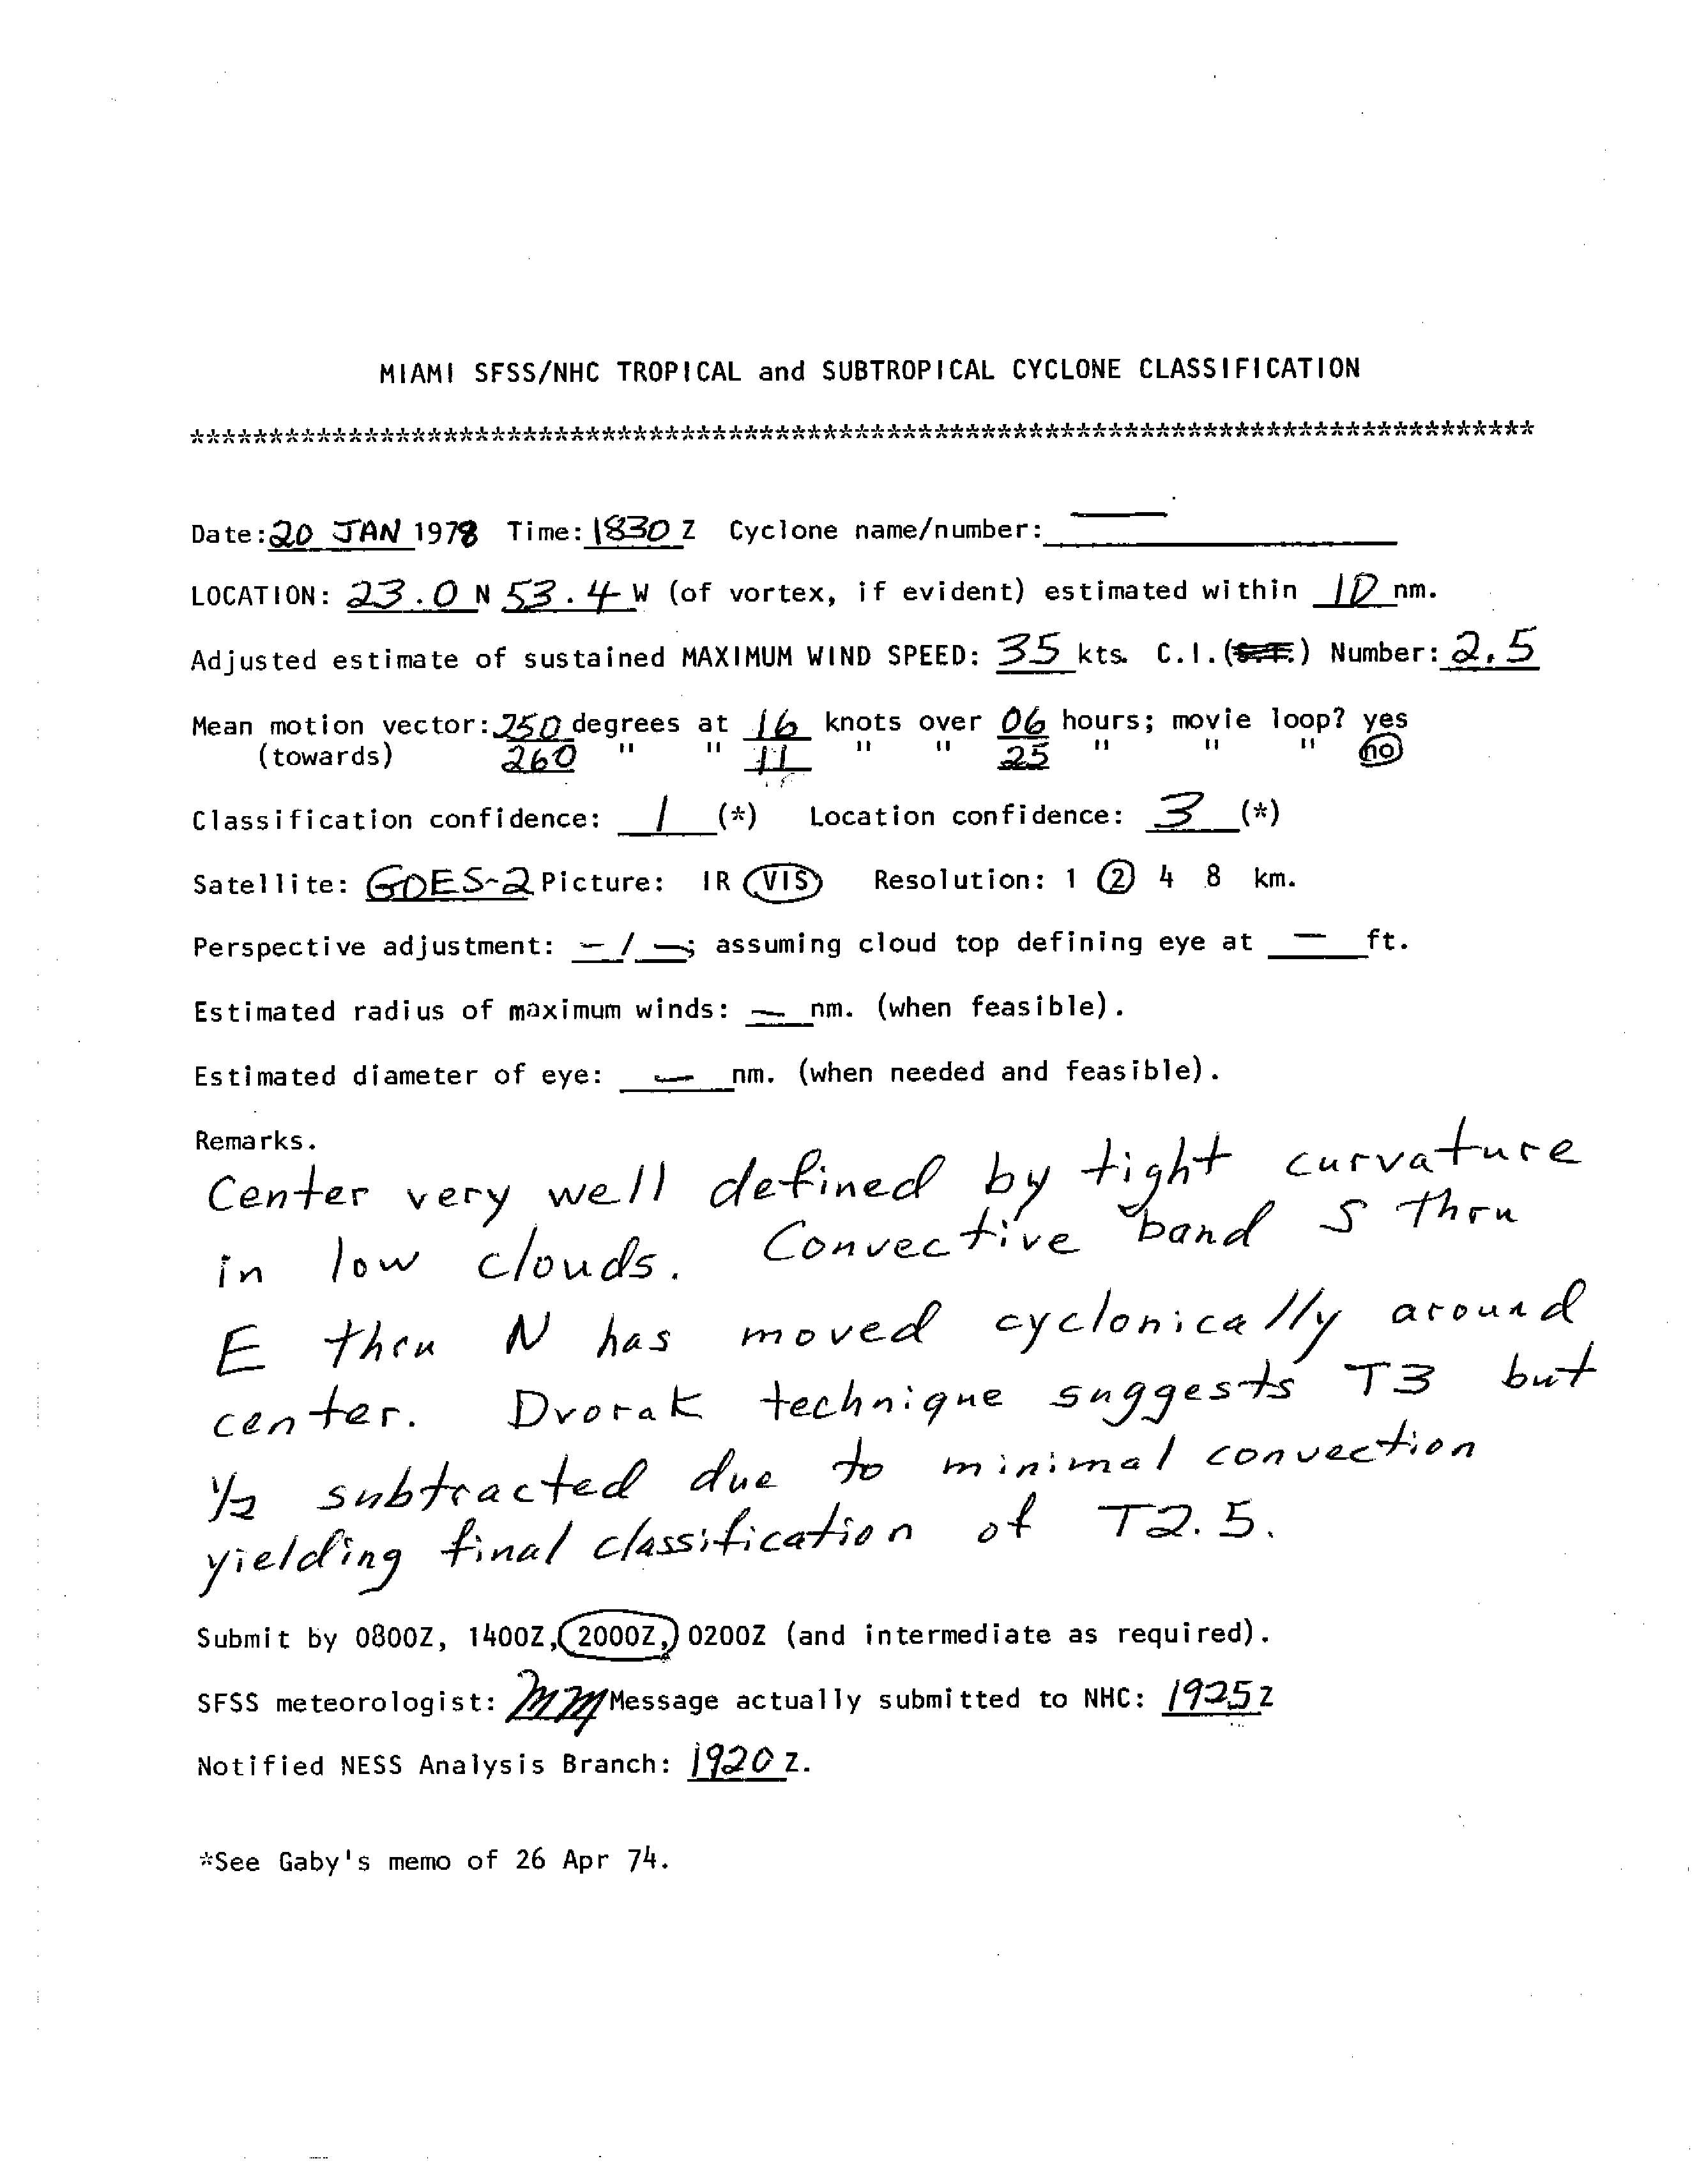 MIAMI SFSS/NHC TROPICAL and SUBTROPICAL CYCLONE CLASSIFICATION
*************************************************************************************
Date: 20 JAN 1978 Time: 1830 Z Cyclone name/number: —
LOCATION: 23.0 N 53.4 W (of vortex, if evident) estimated within 10 nm.
Adjusted estimate of sustained MAXIMUM WIND SPEED: 35 kts. C.I.( ) Number: 2.5
Mean motion vector: 250 degrees at 16 knots over 06 hours; movie loop? yes
(towards) 260 " " 11 " " 25 " " " no
Classification confidence: 1 (*) Location confidence: 3 (*)
Satellite: GOES-2 Picture: IR VIS Resolution: 1 2 4 8 km.
Perspective adjustment: — / —; assuming cloud top defining eye at — ft.
Estimated radius of maximum winds: — nm. (when feasible).
Estimated diameter of eye: — nm. (when needed and feasible).
Remarks.
Center very well defined by tight curvature
in low clouds. Convective band S thru
E thru N has moved cyclonically around
center. Dvorak technique suggests T3 but
1/2 subtracted due to minimal convection
yielding final classification of T2.5.
Submit by 0800Z, 1400Z, 2000Z, 0200Z (and intermediate as required).
SFSS meteorologist: MM Message actually submitted to NHC: 1925 Z
Notified NESS Analysis Branch: 1920 Z.
*See Gaby's memo of 26 Apr 74.